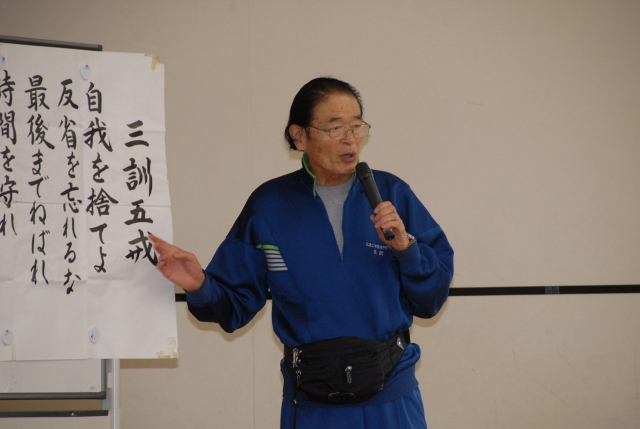 三訓五戒
自我を捨てよ
反省を忘れるな
最後までねばれ
時間を守れ